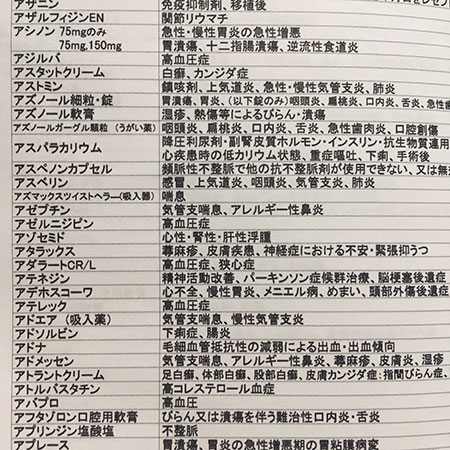 アザニン 免疫抑制剤、移植後
アザルフィジンEN 関節リウマチ
アシノン 75mgのみ 急性・慢性胃炎の急性増悪
75mg,150mg 胃潰瘍、十二指腸潰瘍、逆流性食道炎
アジルバ 高血圧症
アスタットクリーム 白癬、カンジダ症
アストミン 鎮咳剤、上気道炎、急性・慢性気管支炎、肺炎
アズノール細粒・錠 胃潰瘍、胃炎、(以下錠のみ)咽頭炎、扁桃炎、口内炎、舌炎、急性歯
アズノール軟膏 湿疹、熱傷等によるびらん・潰瘍
アズノールガーグル顆粒 (うがい薬) 咽頭炎、扁桃炎、口内炎、舌炎、急性歯肉炎、口腔創傷
アスパラカリウム 降圧利尿剤・副腎皮質ホルモン・インスリン・抗生物質連用
心疾患時の低カリウム状態、重症嘔吐、下痢、手術後
アスペノンカプセル 頻脈性不整脈で他の抗不整脈剤が使用できない、又は無効
アスベリン 感冒、上気道炎、咽頭炎、気管支炎、肺炎
アズマックスツイストヘラー(吸入器) 喘息
アゼプチン 気管支喘息、アレルギー性鼻炎
アゼルニジピン 高血圧症
アゾセミド 心性・腎性・肝性浮腫
アタラックス 蕁麻疹、皮膚疾患、神経症における不安・緊張抑うつ
アダラートCR/L 高血圧症、狭心症
アテネジン 精神活動改善、パーキンソン症候群治療、脳梗塞後遺症
アデホスコーワ 心不全、慢性胃炎、メニエル病、めまい、頭部外傷後遺症
アテレック 高血圧症
アドエア (吸入薬) 気管支喘息、慢性気管支炎
アドソルビン 下痢症、腸炎
アドナ 毛細血管抵抗性の減弱による出血・出血傾向
アドメッセン 気管支喘息、アレルギー性鼻炎、蕁麻疹、皮膚炎、湿疹
アトラントクリーム 足白癬、体部白癬、股部白癬、皮膚カンジダ症:指間びらん症、
アトルバスタチン 高コレステロール血症
アバプロ 高血圧
アフタゾロン口腔用軟膏 びらん又は潰瘍を伴う難治性口内炎・舌炎
アプリンジン塩酸塩 不整脈
アプレース 胃潰瘍、胃炎の急性増悪期の胃粘膜病変